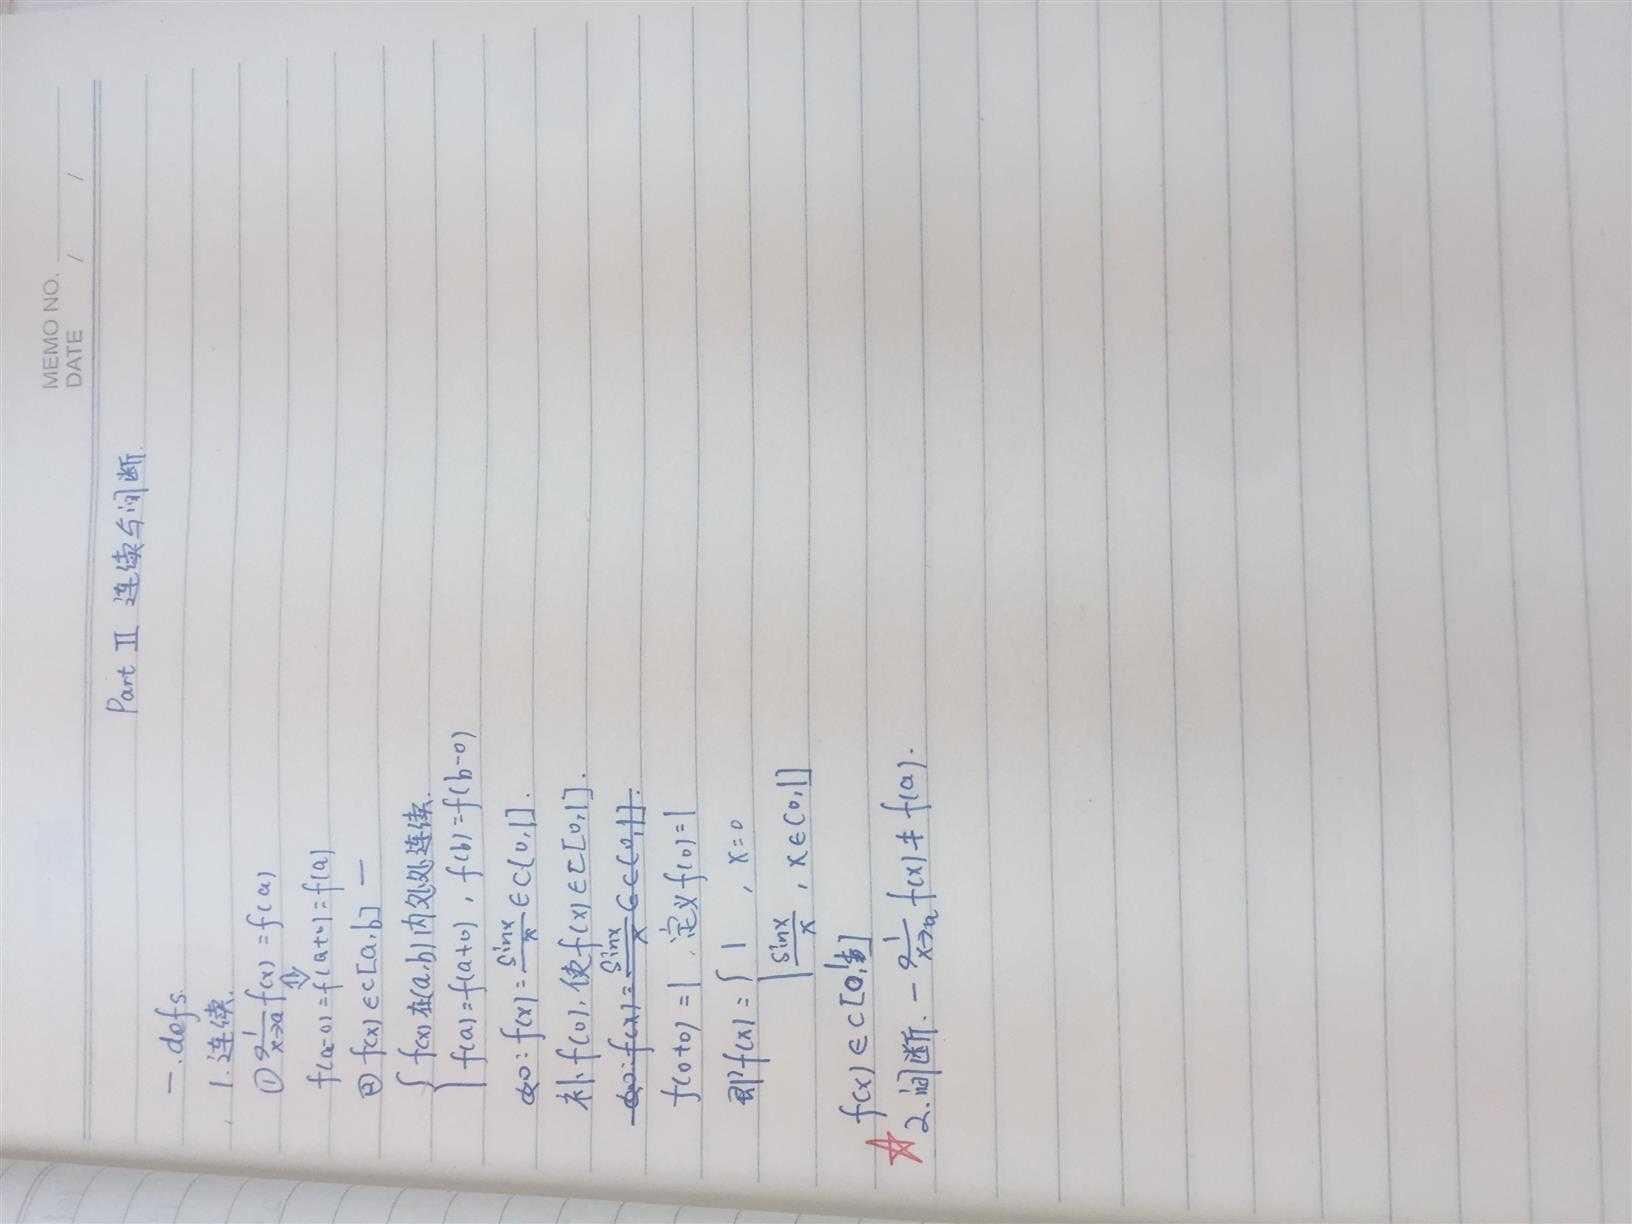 MEMO NO.
DATE / /
Part II 连续与间断.
一.defs.
1.连续.
① lim x→a f(x)=f(a)
⇕
f(a-0)=f(a+0)=f(a)
② f(x)∈C[a,b] —
{ f(x)在(a,b)内处处连续.
f(a)=f(a+0), f(b)=f(b-0)
如: f(x)=sinx/x ∈C(0,1].
补f(0),使f(x)∈C[0,1].
如:f(x)=sinx/x ∈C(0,1].
f(0+0)=1.定义f(0)=1
即f(x)={ 1 , x=0
sinx/x , x∈(0,1]
f(x)∈C[0,1]
☆ 2.间断.— lim x→a f(x)≠f(a).